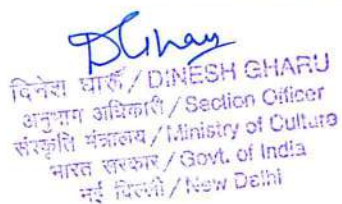 DGhary
दिनेश घारू / DINESH GHARU
अनुभाग अधिकारी / Section Officer
संस्कृति मंत्रालय / Ministry of Culture
भारत सरकार / Govt. of India
नई दिल्ली / New Delhi